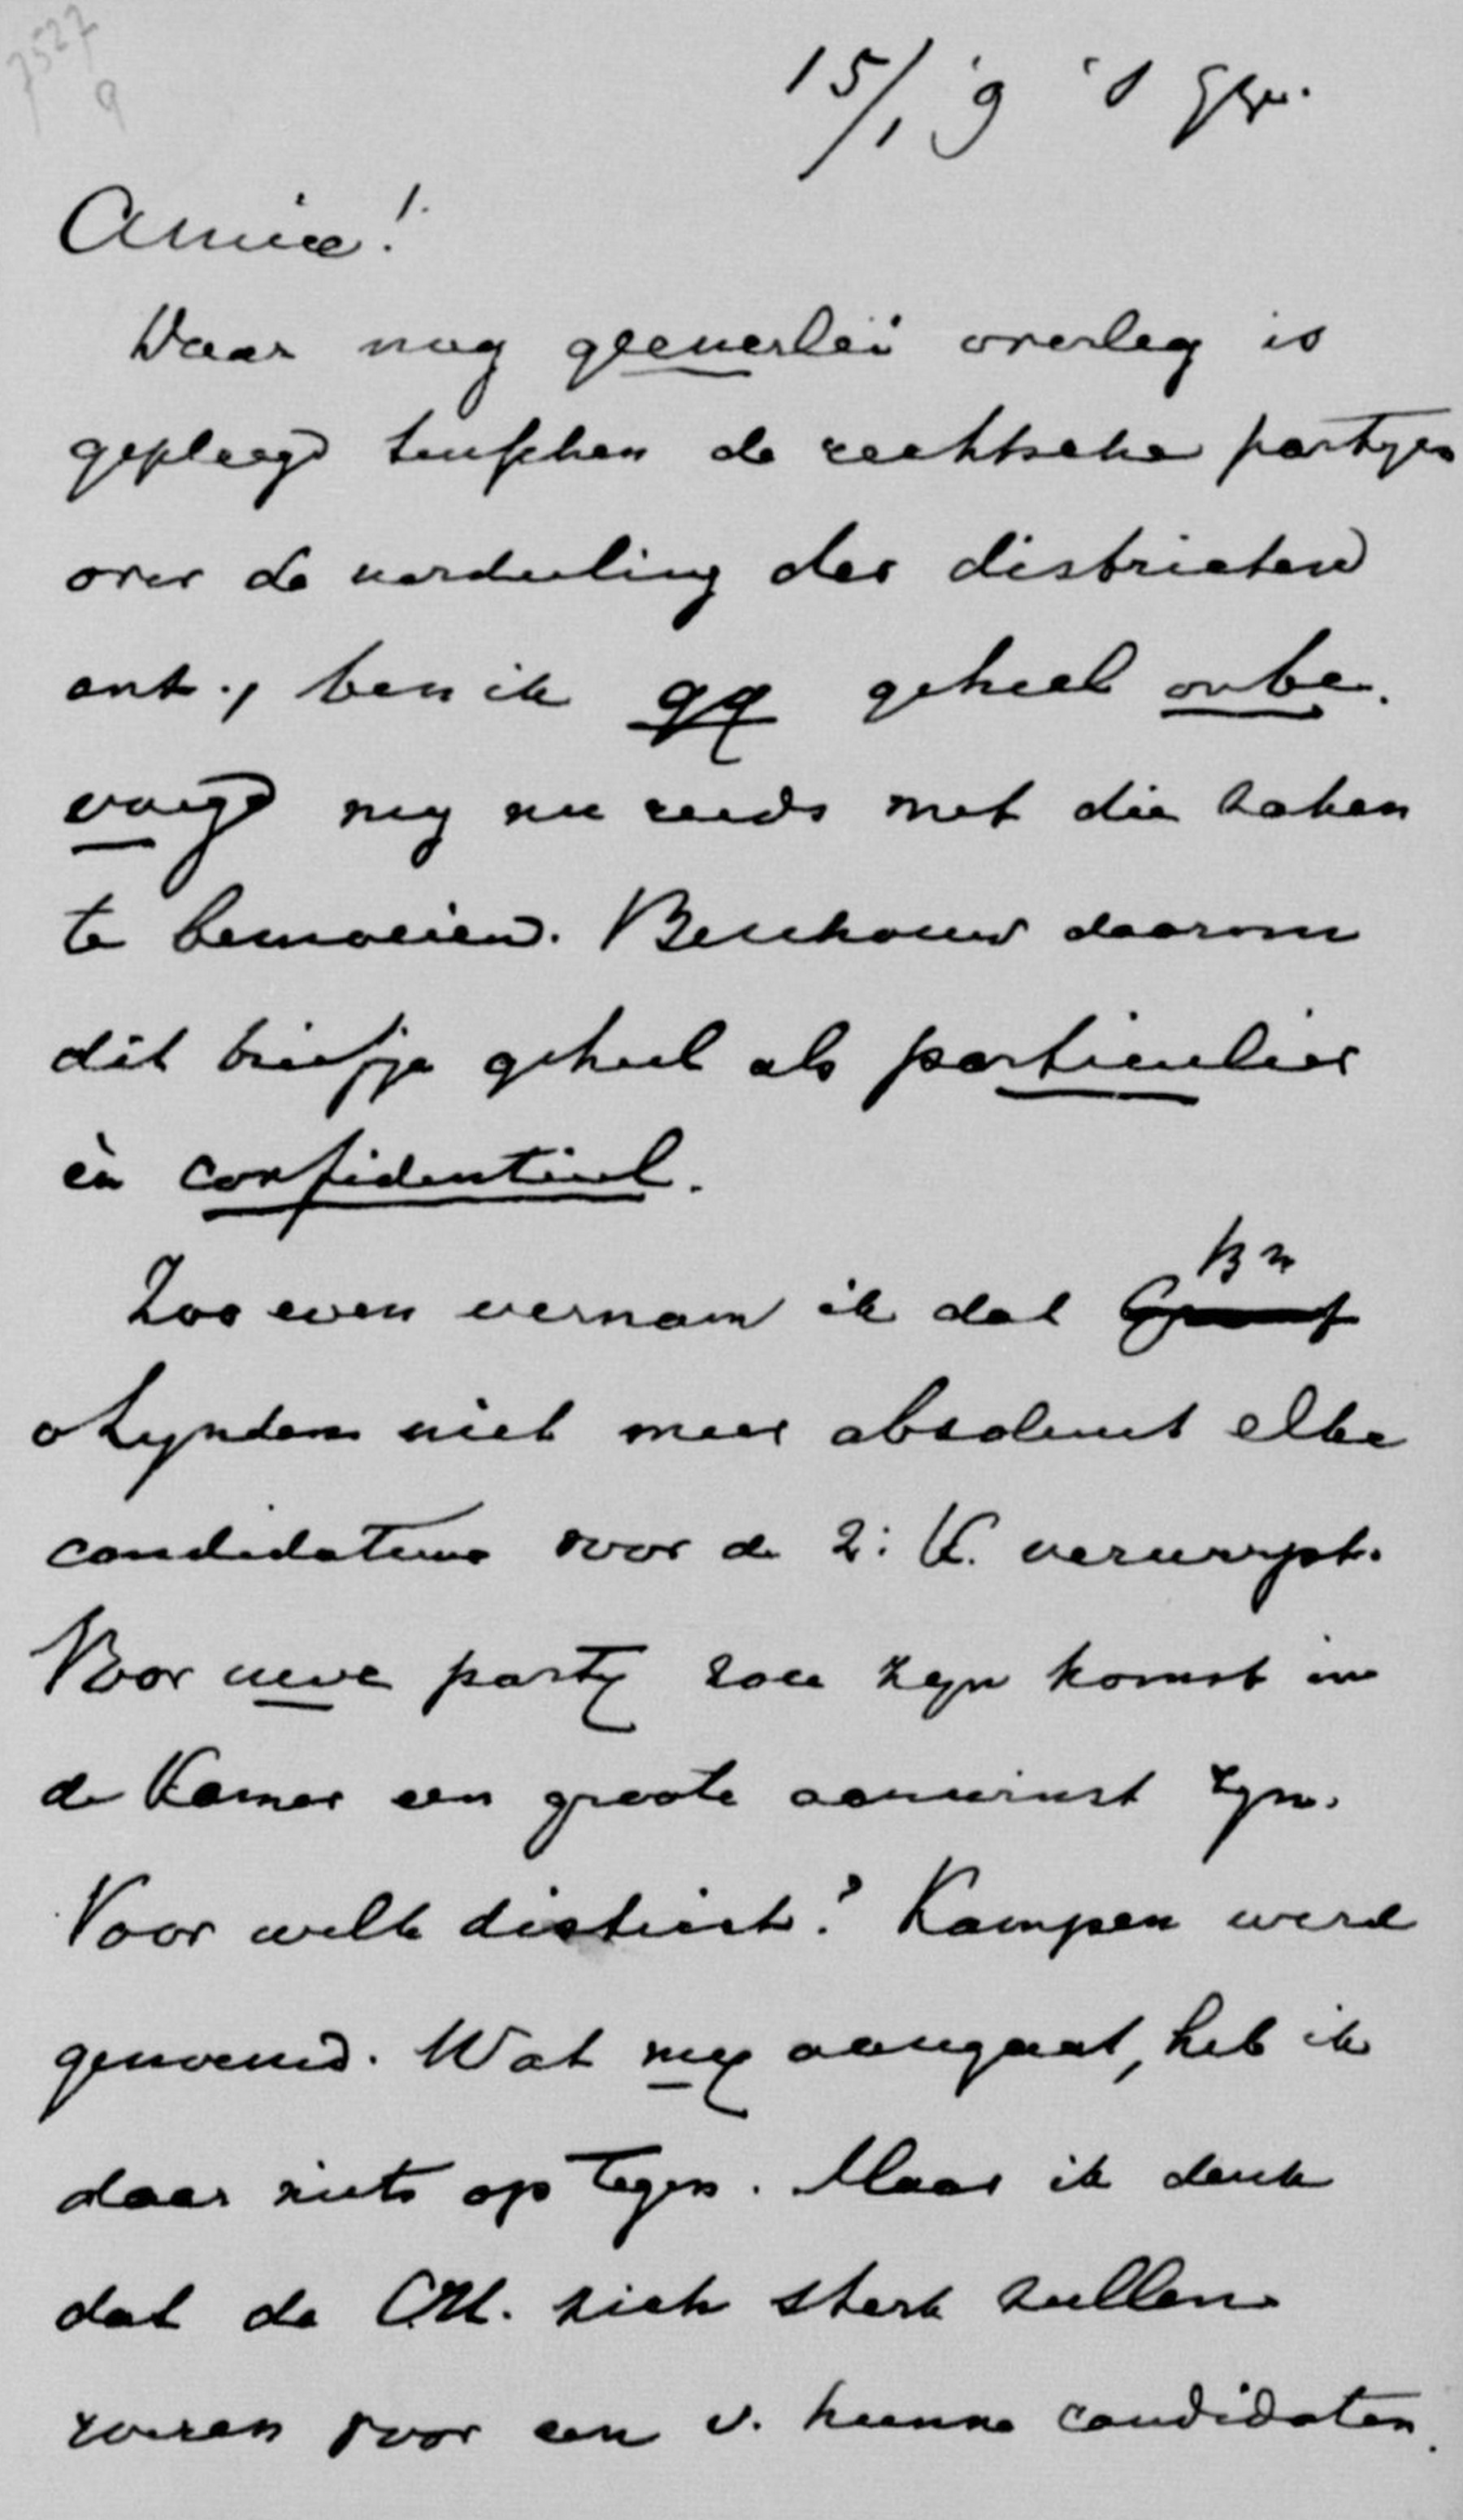 7527
9
15/1 '9 's Ghe.
Amice!
Waar nog geenerlei overleg is
gepleegd tusschen de rechtsche partijen
over de verdeeling der districten
ent., ben ik qq geheel onbe-
voegd mij nu reeds met die zaken
te bemoeien. Beschouw daarom
dit briefje geheel als particulier
èn confidentieel.
Zoo even vernam ik dat Bn
v Lynden niet meer absoluut elke
candidatuur voor de 2e K. verwerpt.
Voor uwe partij zou zijn komst in
de Kamer een groote aanwinst zijn.
Voor welk district? Kampen werd
genoemd. Wat mij aangaat, heb ik
daar niets op tegen. Maar ik denk
dat de C.H. zich sterk zullen
roeren voor een v. hunne candidaten.